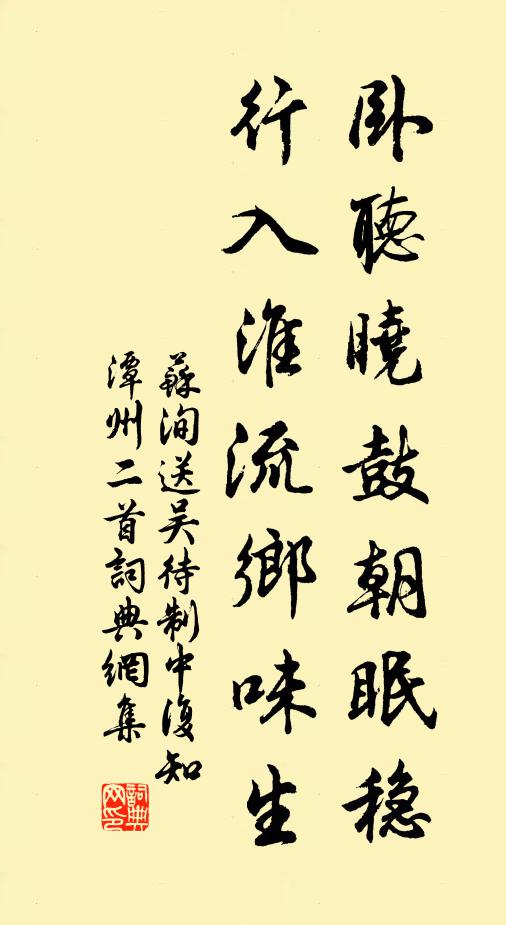 卧聽曉鼓朝眠穩
行入淮流鄉味生
蘇洵送吴待制中復知
潭州二首詞典網集
詞典
网印